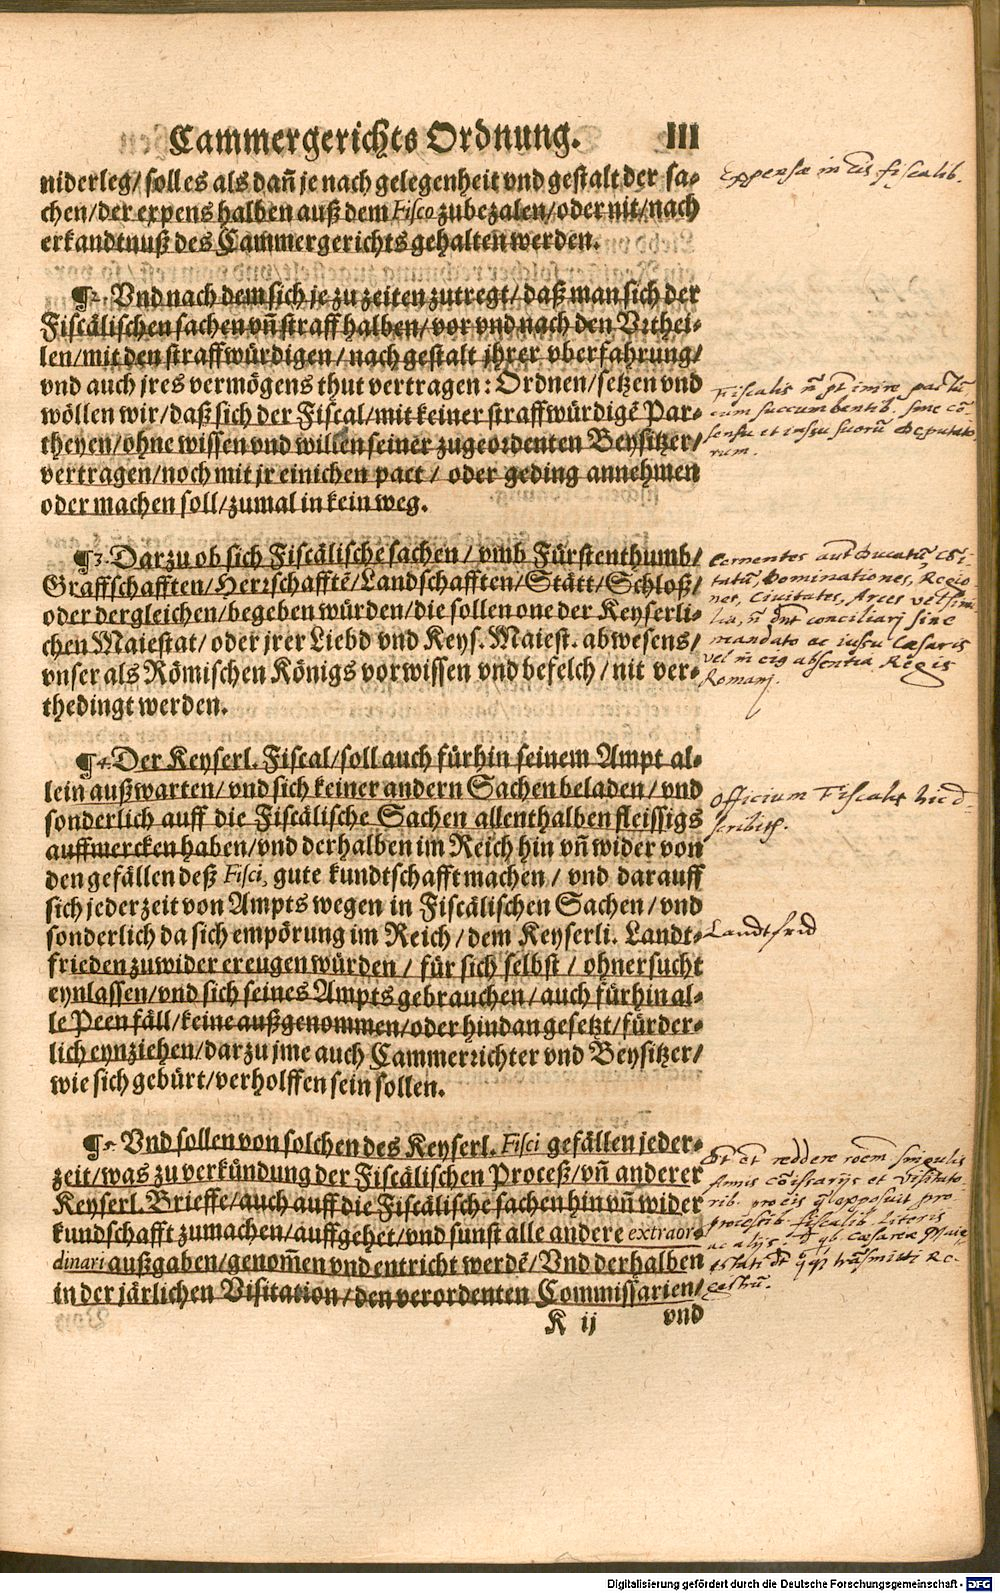 Cammergerichts Ordnung. III
niderleg/ soll es als dañ je nach gelegenheit vnd gestalt der sa-
chen/ der expens halben auß dem Fisco zubezalen/ oder nit/ nach
erkandtnuß des Cammergerichts gehalten werden.
¶2. Vnd nach dem sich je zu zeiten zutregt/ daß man sich der
Fiscälischen sachen vñ straff halben/ vor vnd nach den Vrthei-
len/ mit den straffwürdigen/ nach gestalt jhrer vberfahrung/
vnd auch jres vermögens thut vertragen: Ordnen/ setzen vnd
wöllen wir/ daß sich der Fiscal/ mit keiner straffwürdigẽ Par-
theyen/ ohne wissen vnd willen seiner zugeordenten Beysitzer/
vertragen/ noch mit jr einichen pact/ oder geding annehmen
oder machen soll/ zumal in kein weg.
¶3. Darzu ob sich Fiscälische sachen/ vmb Fürstenthumb/
Graffschafften/ Herrschafftẽ/ Landschafften/ Stätt/ Schloß/
oder dergleichen/ begeben würden/ die sollen one der Keyserli-
chen Maiestat/ oder jrer Liebd vnd Keys. Maiest. abwesens/
vnser als Römischen Königs vorwissen vnd befelch/ nit ver-
thedingt werden.
¶4. Der Keyserl. Fiscal/ soll auch fürhin seinem Ampt al-
lein außwarten/ vnd sich keiner andern Sachen beladen/ vnd
sonderlich auff die Fiscälische Sachen allenthalben fleissigs
auffmercken haben/ vnd derhalben im Reich hin vñ wider von
den gefällen deß Fisci, gute kundtschafft machen/ vnd darauff
sich jederzeit von Ampts wegen in Fiscälischen Sachen/ vnd
sonderlich da sich empörung im Reich/ dem Keyserli. Landt-
frieden zuwider ereugen würden/ für sich selbst/ ohnersucht
eynlassen/ vnd sich seines Ampts gebrauchen/ auch fürhin al-
le Peenfäll/ keine außgenommen/ oder hindan gesetzt/ fürder-
lich eynziehen/ darzu jme auch Cammerrichter vnd Beysitzer/
wie sich gebürt/ verholffen sein sollen.
¶5. Vnd sollen von solchen des Keyserl. Fisci gefällen jeder-
zeit/ was zu verkündung der Fiscälischen Proceß/ vñ anderer
Keyserl. Brieffe/ auch auff die Fiscälische sachen hin vñ wider
kundschafft zumachen/ auffgehet/ vnd sunst alle andere extraor-
dinari außgaben/ genom̃en vnd entricht werdẽ/ Vnd derhalben
in der järlichen Visitation/ den verordenten Commissarien/
K ij vnd
Expensæ in cũis fiscalib.
Fiscalis ñ pt inire pactũ
cum succumbentib. sine cõ-
sensu et iussu suorũ Deputato
rum.
Ducatũ, Cõi-
tatũ, Dominationes, Regio
nes, Civitates, Arces vel simi
lia, ñ dnt conciliarj sine
mandato ac iussu Cæsaris
vel absentia Regis
Romanj.
Officium Fiscalis hic d-
scribitr.
Landtfrid
reddere singulis
Annis cõissarijs et visitato-
rib.
fiscalib. literis
ac alijs Cæsareæ
trãsmitti Re-
gestrũ.
Digitalisierung gefördert durch die Deutsche Forschungsgemeinschaft - DFG